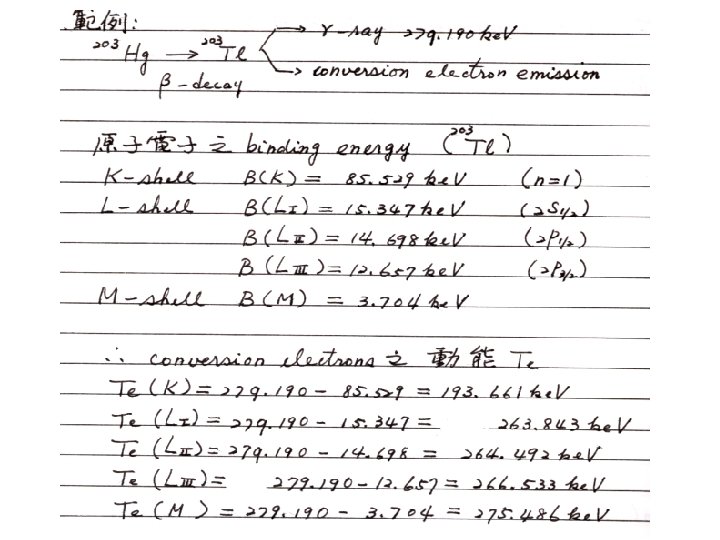 範例:
²⁰³Hg → ²⁰³Tl → γ-ray 279.190 keV
→ conversion electron emission
β-decay
原子電子之 binding energy (²⁰³Tl)
K-shell B(K) = 85.529 keV (n=1)
L-shell B(LⅠ) = 15.347 keV (2S½)
B(LⅡ) = 14.698 keV (2P½)
B(LⅢ) = 12.657 keV (2P3/2)
M-shell B(M) = 3.704 keV
∴ conversion electrons 之 動能 Te
Te (K) = 279.190 - 85.529 = 193.661 keV
Te (LⅠ) = 279.190 - 15.347 = 263.843 keV
Te (LⅡ) = 279.190 - 14.698 = 264.492 keV
Te (LⅢ) = 279.190 - 12.657 = 266.533 keV
Te (M) = 279.190 - 3.704 = 275.486 keV